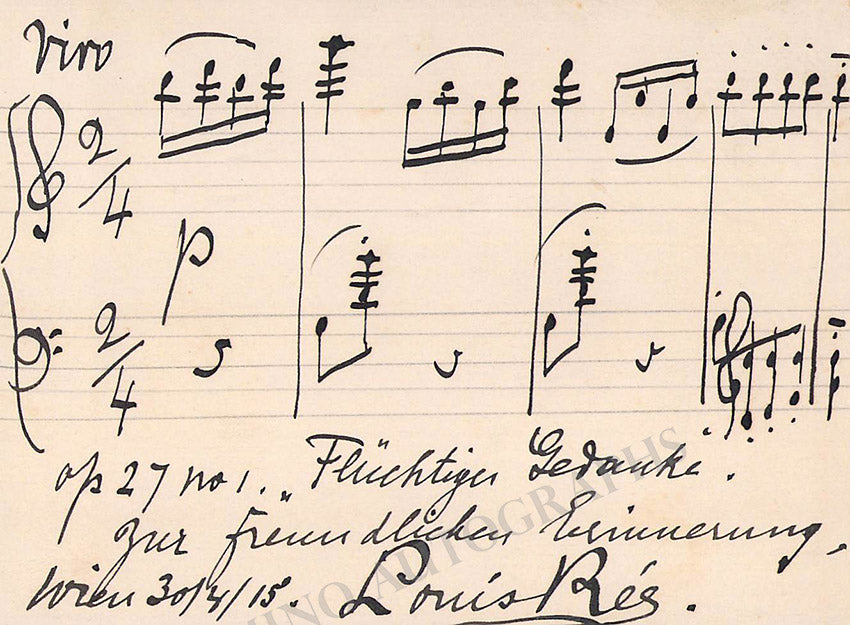 Vivo
2/4
p
2/4
op 27 no 1. „Flüchtiger Gedanke".
zur freundlichen Erinnerung,
Wien 30/4/15. Louis Rée.
INO AUTOGRAPHS